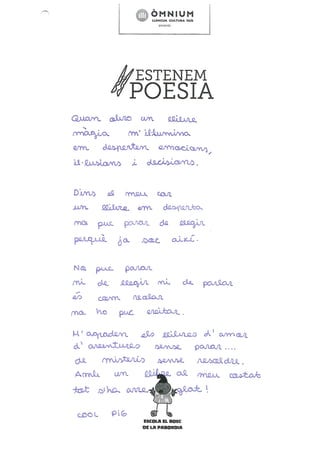 ÒMNIUM
LLENGUA CULTURA PAÍS
ESTENEM
POESIA
Quan obro un llibre
màgia m'il·lumina
em desperten emocions,
il·lusions i decisions.
Dins el meu cor
un llibre em desperta
no puc parar de llegir
perquè ja soc així.
No puc parar
ni de llegir ni de parlar
és com resolar
no ho puc evitar.
M'agraden els llibres d'amor
d'aventures sense parar....
de misteris sense resoldre.
Amb un llibre al meu costat
tot s'ha arreglat!
COOL PIG
ESCOLA EL ROSC
DE LA PABORDIA